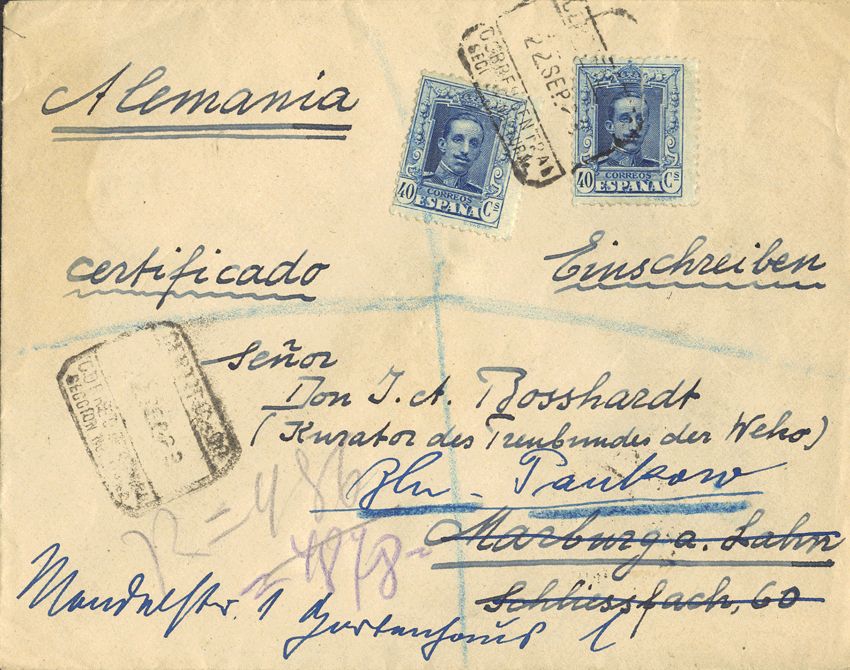 Alemania
22 SEP.
40 Cs
CORREOS
ESPAÑA
40 Cs
CORREOS
ESPAÑA
certificado
Einschreiben
Señor
Don J. A. Bosshardt
(Kurator des Treubundes der Weho)
Bln - Pankow
Marburg a. Lahn
Schliessfach, 60
R = 486
Mandelstr. 1 Gartenhaus